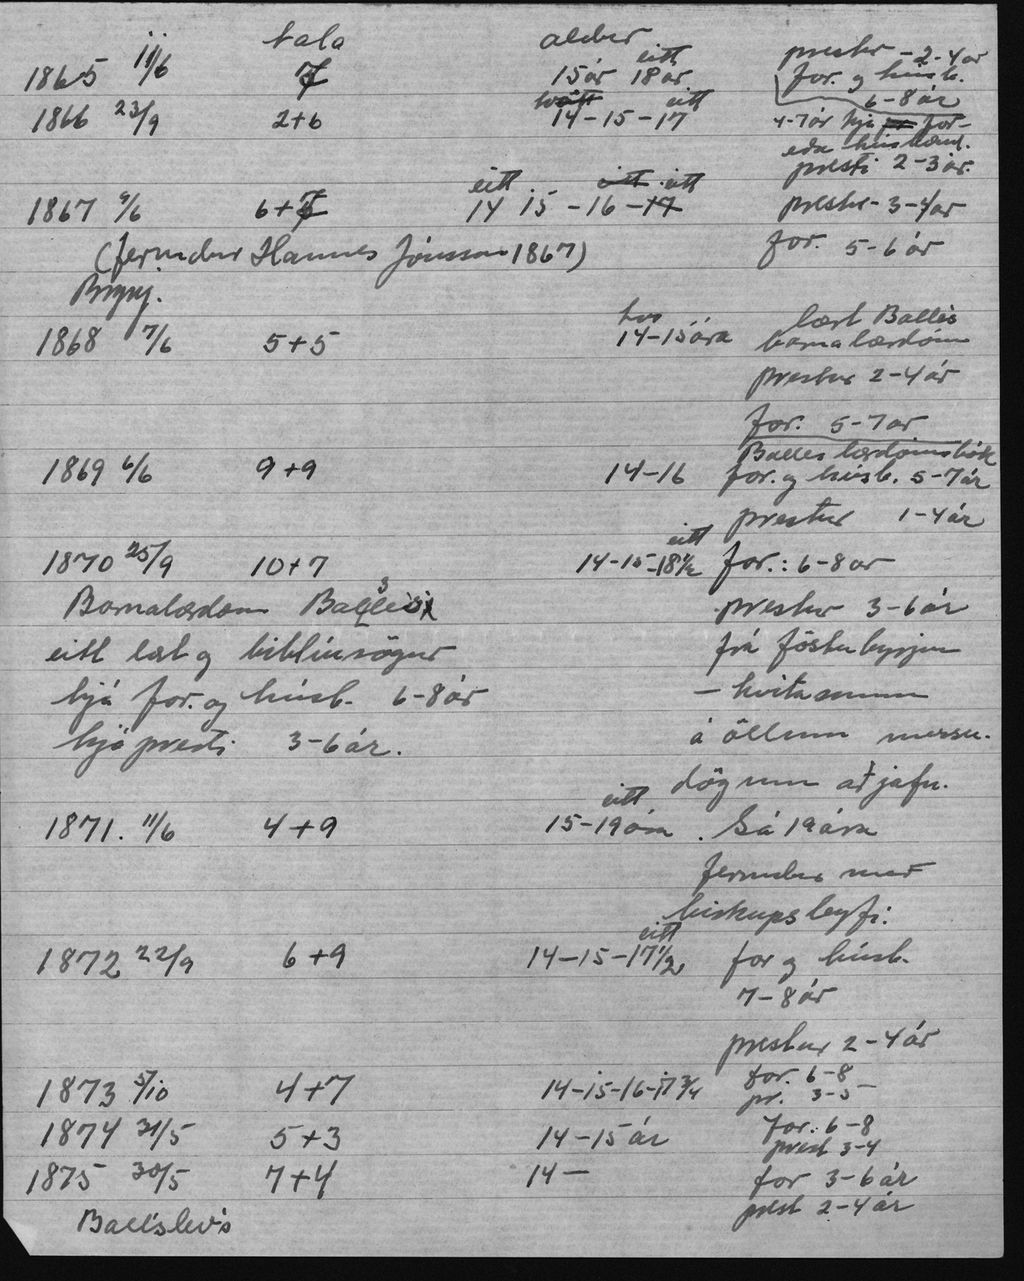 tala aldur
1865 11/6 7 15 ár eitt 18 ár prestur - 2-4 ár
for. og húsb.
6-8 ár
1866 23/9 2+6 14-15-17 eitt 4-7 ár hjá for-
eða húsbænd.
presti 2-3 ár.
1867 9/6 6+ eitt 14 15 -16 -17 eitt prestur - 3-4 ár
(fermdur Hannes Jónsson 1867) for. 5-6 ár
Brynj.
1868 7/6 5+5 14-15 ára lært Balles
barnalærdóm
prestur 2-4 ár
for. 5-7 ár
Balles lærdómsbók
1869 6/6 9+9 14-16 for. og húsb. 5-7 ár
prestur 1-4 ár
1870 25/9 10+7 14-15-18½ eitt for.: 6-8 ár
Barnalærdóm Balles prestur 3-6 ár
eitt lært og biblíusögur frá föstubyrjun
hjá for. og húsb. 6-8 ár - hvítasunnu
hjá presti 3-6 ár. á öllum messu-
dögum að jafn.
1871. 11/6 4+9 eitt 15-19 ára. Sá 19 ára
fermdur með
biskupsleyfi.
1872 22/9 6+9 14-15-17½ eitt for og húsb.
7-8 ár
prestur 2-4 ár
1873 5/10 4+7 14-15-16-17¾ for. 6-8
pr. 3-5
1874 31/5 5+3 14-15 ár for.: 6-8
prest 3-4
1875 30/5 7+4 14- for 3-6 ár
prest 2-4 ár
Balslev's